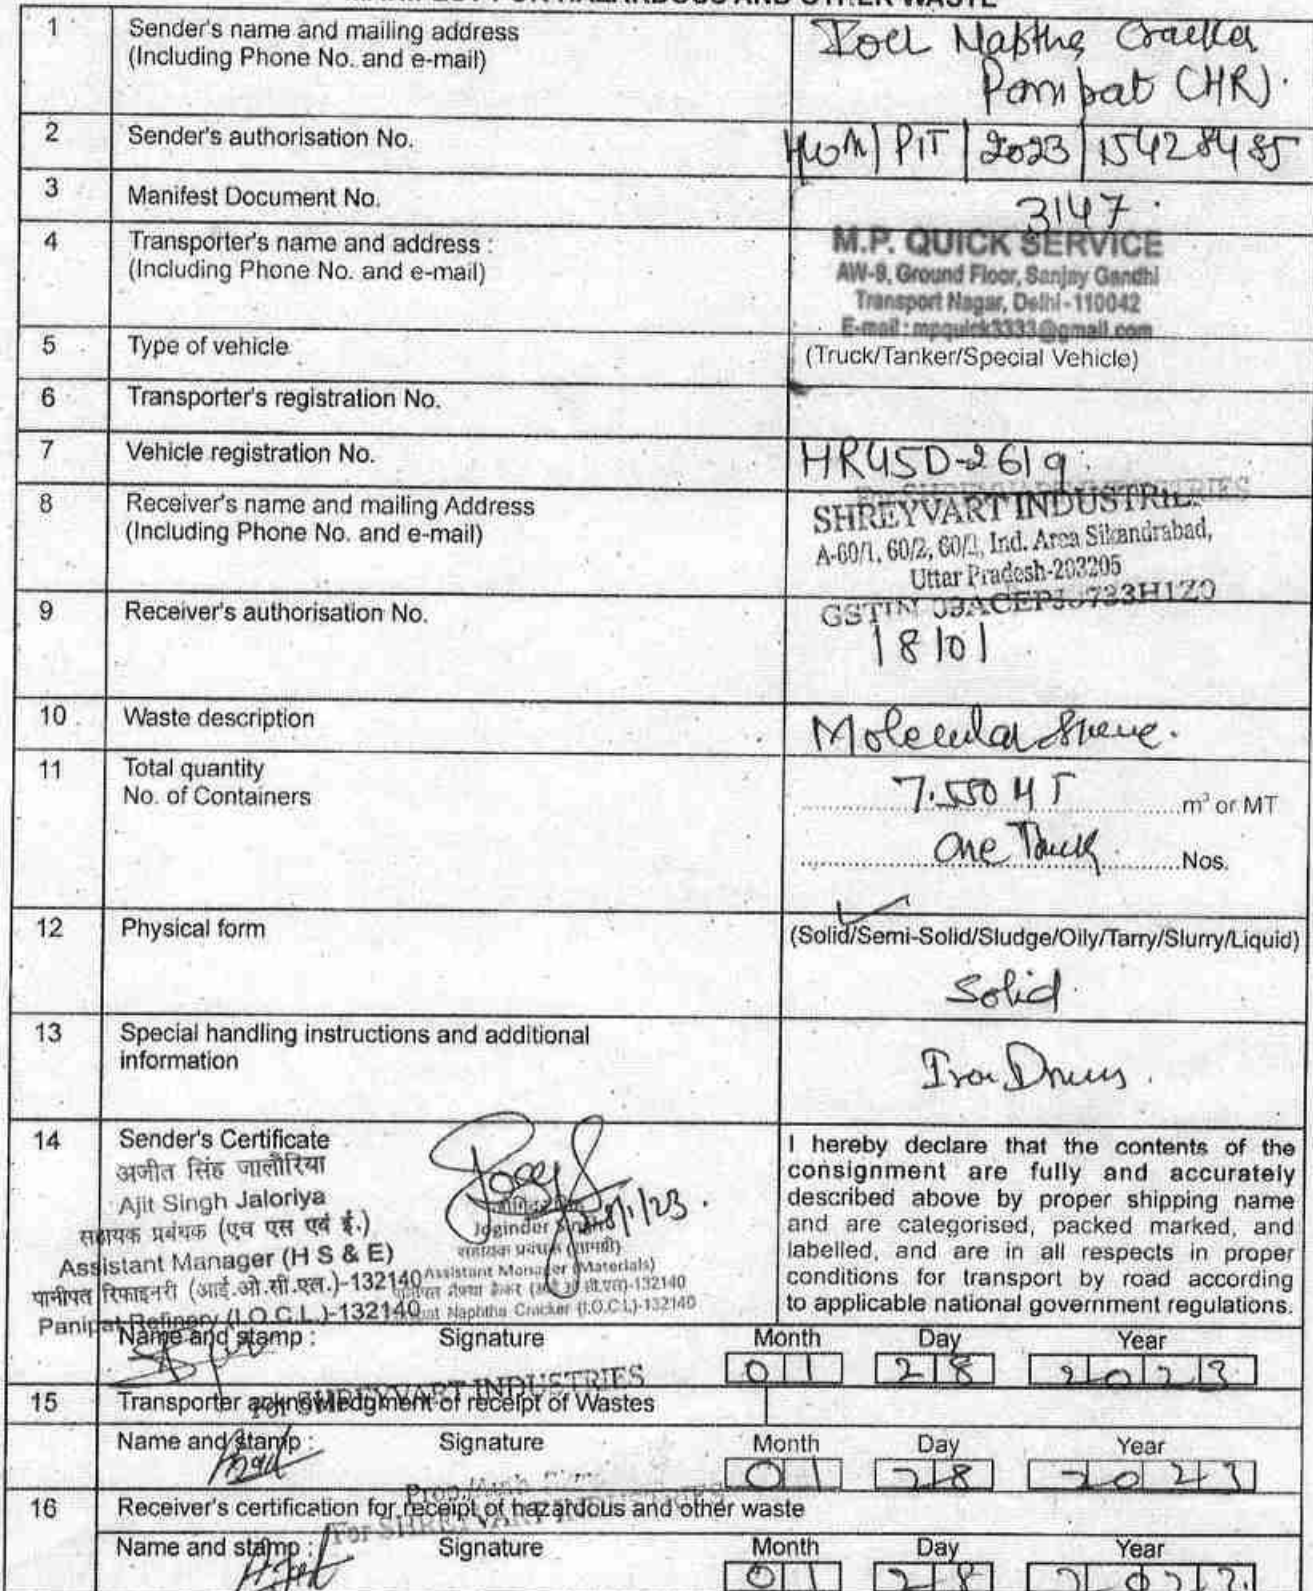 MANIFEST FOR HAZARDOUS AND OTHER WASTE
1 Sender's name and mailing address
(Including Phone No. and e-mail)
Naptha Cracker
Panipat (HR).
2 Sender's authorisation No.
PIT | 2023 | 15428485
3 Manifest Document No.
3147.
4 Transporter's name and address :
(Including Phone No. and e-mail)
M.P. QUICK SERVICE
AW-9, Ground Floor, Sanjay Gandhi
Transport Nagar, Delhi-110042
E-mail : mpquick3333@gmail.com
5 Type of vehicle
(Truck/Tanker/Special Vehicle)
6 Transporter's registration No.
7 Vehicle registration No.
HR45D-2619
8 Receiver's name and mailing Address
(Including Phone No. and e-mail)
SHREYVART INDUSTRI
A-60/1, 60/2, Ind. Area Sikandrabad,
Uttar Pradesh-203205
GSTIN
9 Receiver's authorisation No.
18101
10 Waste description
Molecular Sieve.
11 Total quantity
No. of Containers
7.550 MT m³ or MT
One Truck Nos.
12 Physical form
(Solid/Semi-Solid/Sludge/Oily/Tarry/Slurry/Liquid)
Solid
13 Special handling instructions and additional
information
Iron Drums.
14 Sender's Certificate
अजीत सिंह जालौरिया
Ajit Singh Jaloriya
सहायक प्रबंधक (एच एस एवं ई.)
Assistant Manager (H S & E)
पानीपत रिफाइनरी (आई.ओ.सी.एल.)-132140
Panipat Refinery (I.O.C.L.)-132140
Joginder
Assistant Manager (Materials)
Naphtha Cracker (I.O.C.L)-132140
I hereby declare that the contents of the
consignment are fully and accurately
described above by proper shipping name
and are categorised, packed marked, and
labelled, and are in all respects in proper
conditions for transport by road according
to applicable national government regulations.
Name and stamp : Signature Month Day Year
01 28 2023
For SHREYVART INDUSTRIES
15 Transporter acknowledgment of receipt of Wastes
Name and stamp : Signature Month Day Year
01 28 2023
16 Receiver's certification for receipt of hazardous and other waste
For SHREYVART
Name and stamp : Signature Month Day Year
01 28 2023